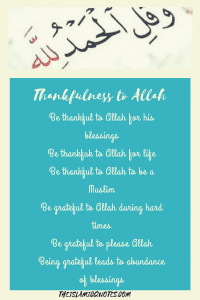 وَقُلِ ٱلْحَمْدُ لِلَّٰهِ
Thankfulness to Allah
Be thankful to Allah for his
blessings
Be thankful to Allah for life
Be thankful to Allah to be a
Muslim
Be grateful to Allah during hard
times
Be grateful to please Allah
Being grateful leads to abundance
of blessings
THEISLAMICNOTES.COM